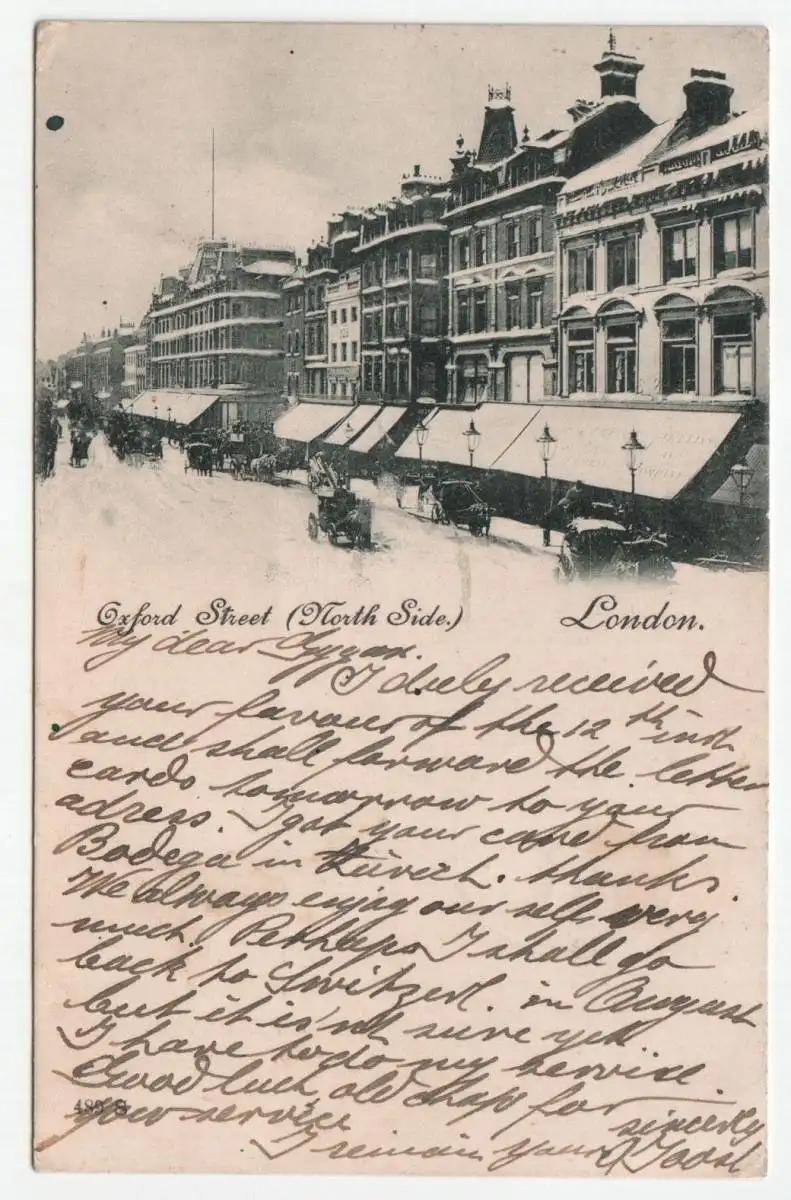 Oxford Street (North Side.) London.
My dear
I duly received
your favour of the 12th inst
and shall forward the letter
cards tomorrow to your
adress. I got your card from
Bodega in Zürich. thanks.
We always enjoy our self very
much. Perhaps I shall go
back to Switzerl. in August
but it is'nt sure yet
I have to do my service.
Good luck old chap for
489 S
your service sincerly
I remain your